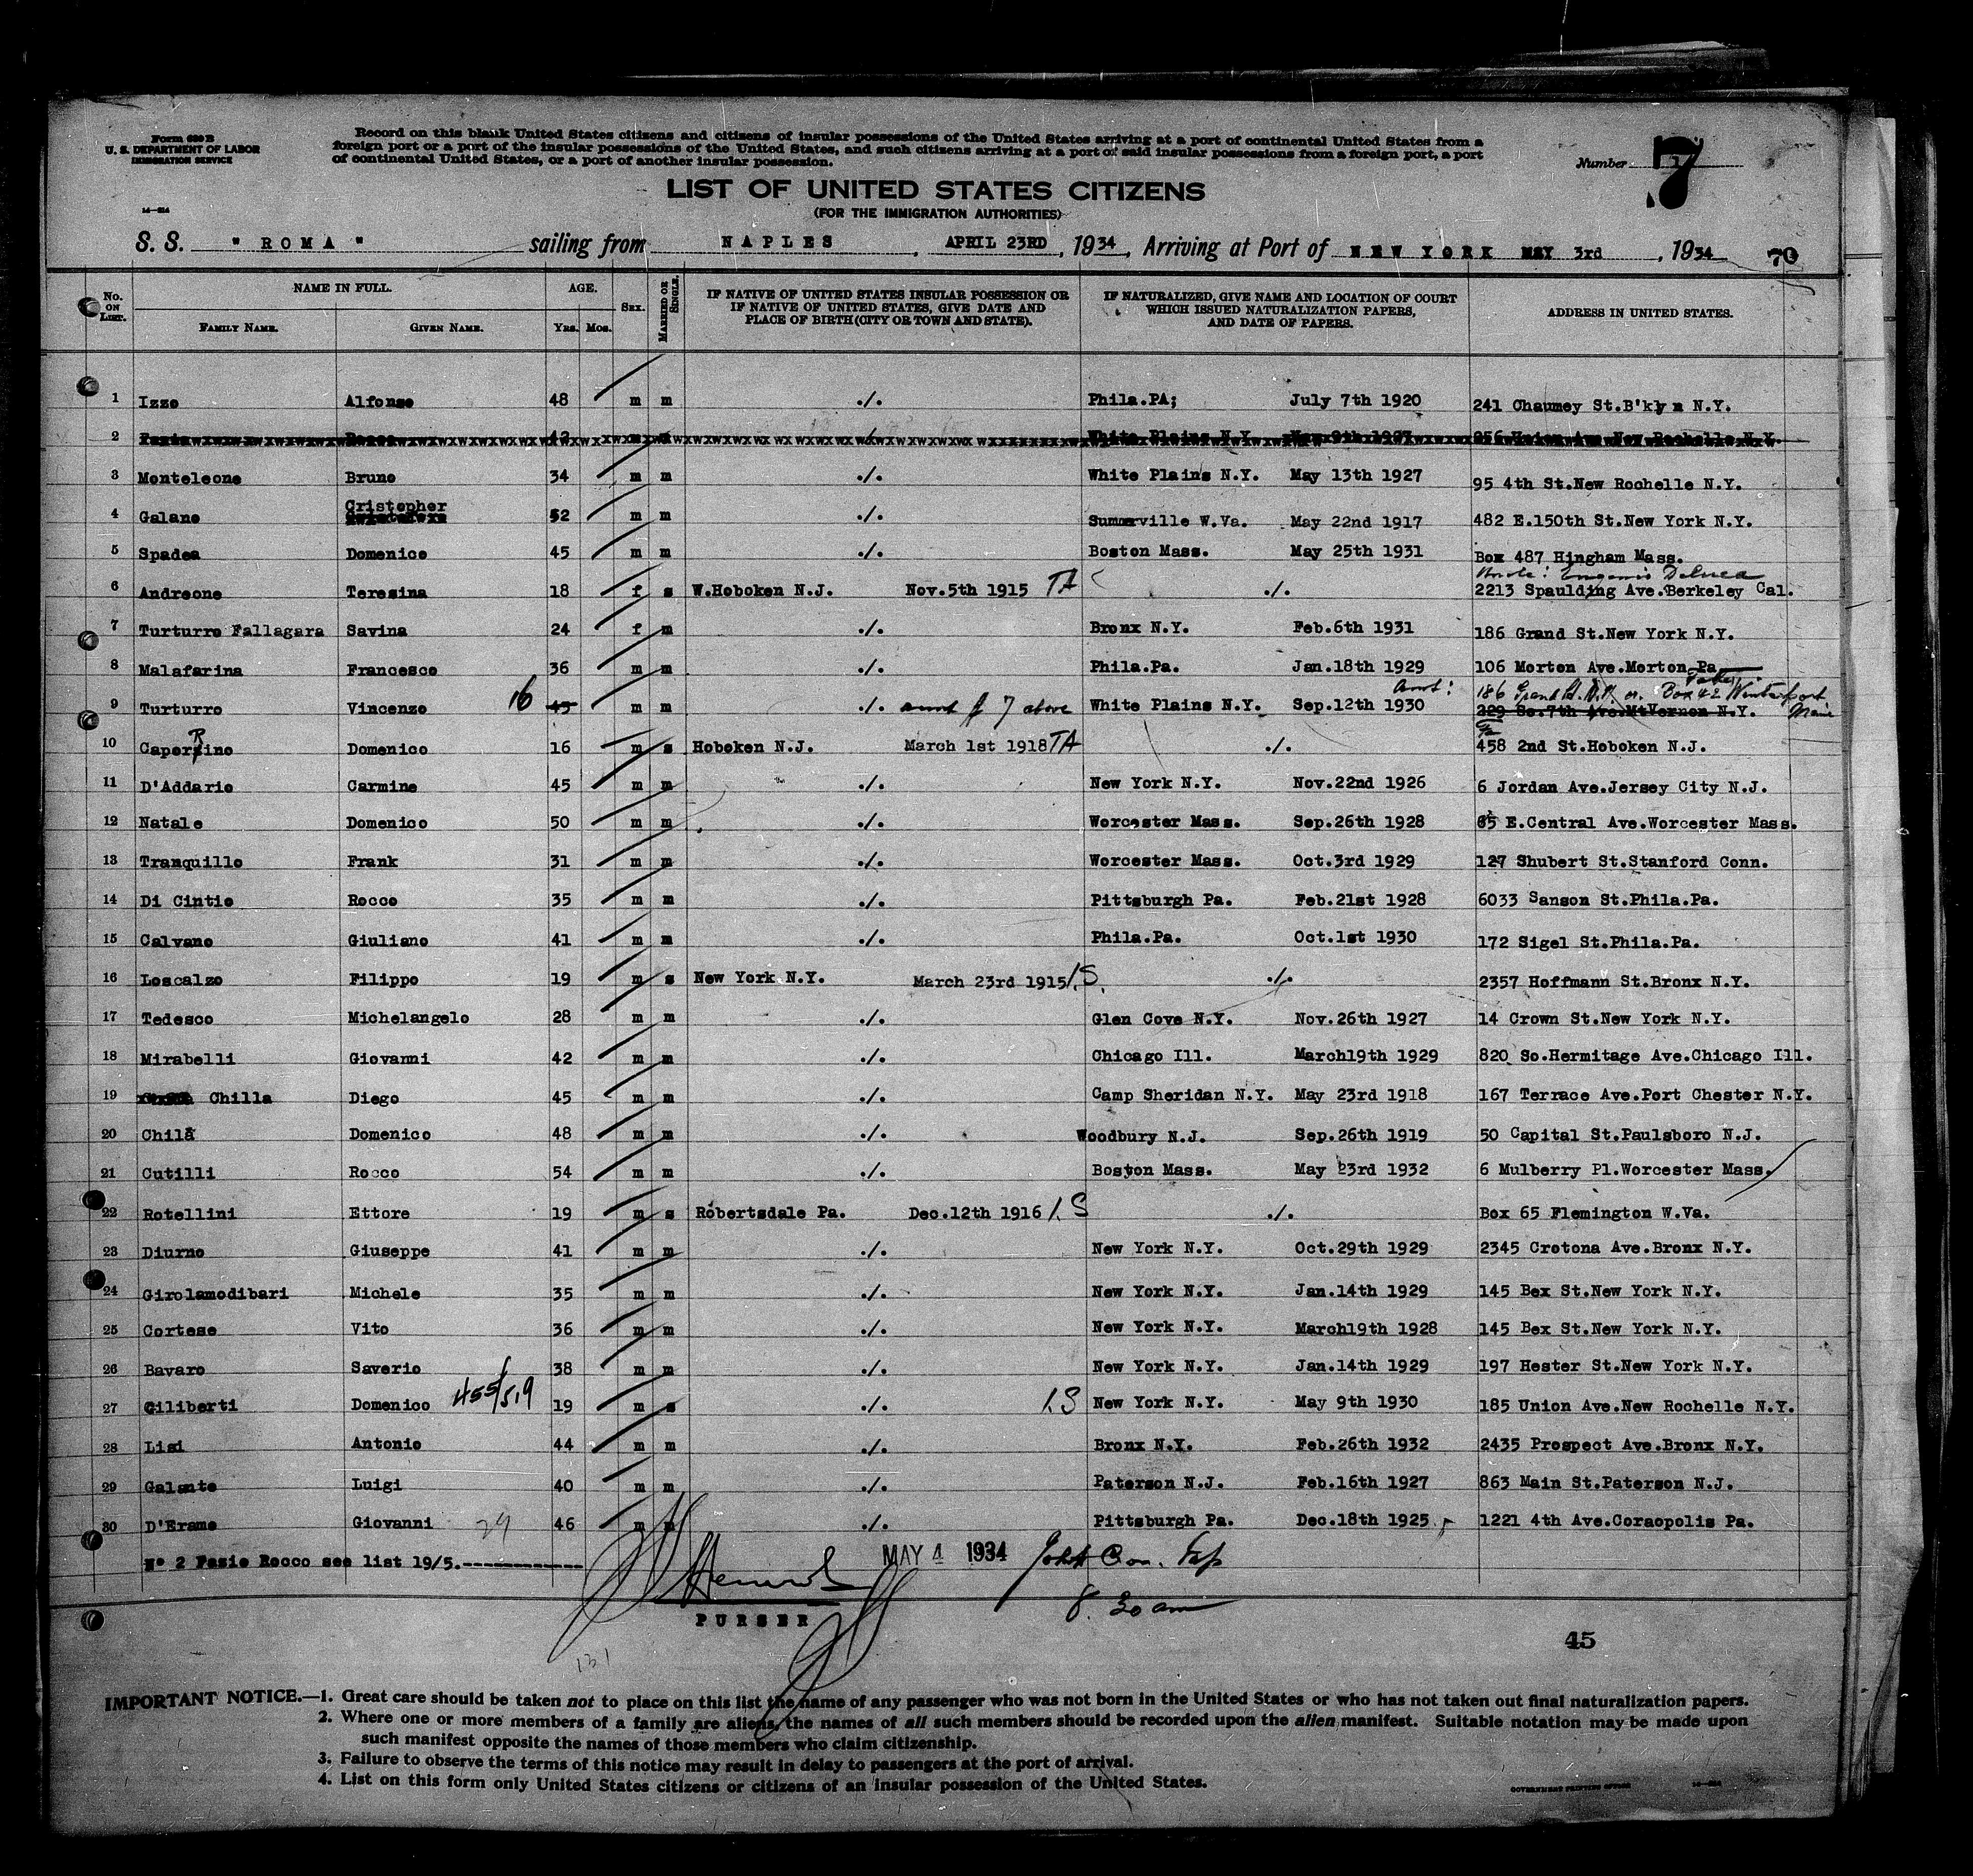 Form 630 B
U. S. DEPARTMENT OF LABOR
IMMIGRATION SERVICE
Record on this blank United States citizens and citizens of insular possessions of the United States arriving at a port of continental United States from a
foreign port or a port of the insular possessions of the United States, and such citizens arriving at a port of said insular possessions from a foreign port, a port
of continental United States, or a port of another insular possession.
Number 7
LIST OF UNITED STATES CITIZENS
(FOR THE IMMIGRATION AUTHORITIES)
S. S. " ROMA " sailing from NAPLES, APRIL 23RD, 1934, Arriving at Port of NEW YORK MAY 3rd, 1934 70
No. ON LIST. NAME IN FULL. FAMILY NAME. GIVEN NAME. AGE. YRS. MOS. SEX. MARRIED OR SINGLE. IF NATIVE OF UNITED STATES INSULAR POSSESSION OR IF NATIVE OF UNITED STATES, GIVE DATE AND PLACE OF BIRTH (CITY OR TOWN AND STATE). IF NATURALIZED, GIVE NAME AND LOCATION OF COURT WHICH ISSUED NATURALIZATION PAPERS, AND DATE OF PAPERS. ADDRESS IN UNITED STATES.
1 Izzo Alfonso 48 m m ./. Phila.PA; July 7th 1920 241 Chaumey St.B'klyn N.Y.
2 White Plains N.Y. 256 Union Ave.New Rochelle N.Y.
3 Monteleone Bruno 34 m m ./. White Plains N.Y. May 13th 1927 95 4th St.New Rochelle N.Y.
4 Galano Cristopher 52 m m ./. Summrville W.Va. May 22nd 1917 482 E.150th St.New York N.Y.
5 Spadea Domenico 45 m m ./. Boston Mass. May 25th 1931 Box 487 Hingham Mass.
6 Andreone Teresina 18 f s W.Hoboken N.J. Nov.5th 1915 TA ./. 2213 Spaulding Ave.Berkeley Cal.
7 Turturro Fallagara Savina 24 f m ./. Bronx N.Y. Feb.6th 1931 186 Grand St.New York N.Y.
8 Malafarina Francesco 36 m m ./. Phila.Pa. Jan.18th 1929 106 Morton Ave.Morton Pa
9 Turturro Vincenzo 16 45 m m ./. aunt # 7 above White Plains N.Y. Sep.12th 1930 aunt: 186 Grand St. N.Y. or Box 42 Winterport Maine 329 So.7th Ave.MtVernon N.Y.
10 Caporrino Domenico 16 m s Hoboken N.J. March 1st 1918 TA ./. 458 2nd St.Hoboken N.J.
11 D'Addario Carmine 45 m m ./. New York N.Y. Nov.22nd 1926 6 Jordan Ave.Jersey City N.J.
12 Natale Domenico 50 m m ./. Worcester Mass. Sep.26th 1928 65 E.Central Ave.Worcester Mass.
13 Tranquillo Frank 31 m m ./. Worcester Mass. Oct.3rd 1929 127 Shubert St.Stanford Conn.
14 Di Cintio Rocco 35 m m ./. Pittsburgh Pa. Feb.21st 1928 6033 Sanson St.Phila.Pa.
15 Calvano Giuliano 41 m m ./. Phila.Pa. Oct.1st 1930 172 Sigel St.Phila.Pa.
16 Loscalzo Filippo 19 m s New York N.Y. March 23rd 1915 ./. 2357 Hoffmann St.Bronx N.Y.
17 Tedesco Michelangelo 28 m m ./. Glen Cove N.Y. Nov.26th 1927 14 Crown St.New York N.Y.
18 Mirabelli Giovanni 42 m m ./. Chicago Ill. March19th 1929 820 So.Hermitage Ave.Chicago Ill.
19 Chilla Diego 45 m m ./. Camp Sheridan N.Y. May 23rd 1918 167 Terrace Ave.Port Chester N.Y.
20 Chilà Domenico 48 m m ./. Woodbury N.J. Sep.26th 1919 50 Capital St.Paulsboro N.J.
21 Cutilli Rocco 54 m m ./. Boston Mass. May 23rd 1932 6 Mulberry Pl.Worcester Mass.
22 Rotellini Ettore 19 m s Robertsdale Pa. Dec.12th 1916 ./. Box 65 Flemington W.Va.
23 Diurno Giuseppe 41 m m ./. New York N.Y. Oct.29th 1929 2345 Crotona Ave.Bronx N.Y.
24 Girolamodibari Michele 35 m m ./. New York N.Y. Jan.14th 1929 145 Bex St.New York N.Y.
25 Cortese Vito 36 m m ./. New York N.Y. March19th 1928 145 Bex St.New York N.Y.
26 Bavaro Saverio 38 m m ./. New York N.Y. Jan.14th 1929 197 Hester St.New York N.Y.
27 Giliberti Domenico 455/519 19 m s ./. New York N.Y. May 9th 1930 185 Union Ave.New Rochelle N.Y.
28 Lisi Antonio 44 m m ./. Bronx N.Y. Feb.26th 1932 2435 Prospect Ave.Bronx N.Y.
29 Galante Luigi 40 m m ./. Paterson N.J. Feb.16th 1927 863 Main St.Paterson N.J.
30 D'Eramo Giovanni 29 46 m m ./. Pittsburgh Pa. Dec.18th 1925 1221 4th Ave.Coraopolis Pa.
N° 2 Fazio Rocco see list 19/5.
MAY 4 1934
8.30 am
PURSER
131
45
IMPORTANT NOTICE.—1. Great care should be taken not to place on this list the name of any passenger who was not born in the United States or who has not taken out final naturalization papers.
2. Where one or more members of a family are aliens, the names of all such members should be recorded upon the alien manifest. Suitable notation may be made upon
such manifest opposite the names of those members who claim citizenship.
3. Failure to observe the terms of this notice may result in delay to passengers at the port of arrival.
4. List on this form only United States citizens or citizens of an insular possession of the United States.
GOVERNMENT PRINTING OFFICE